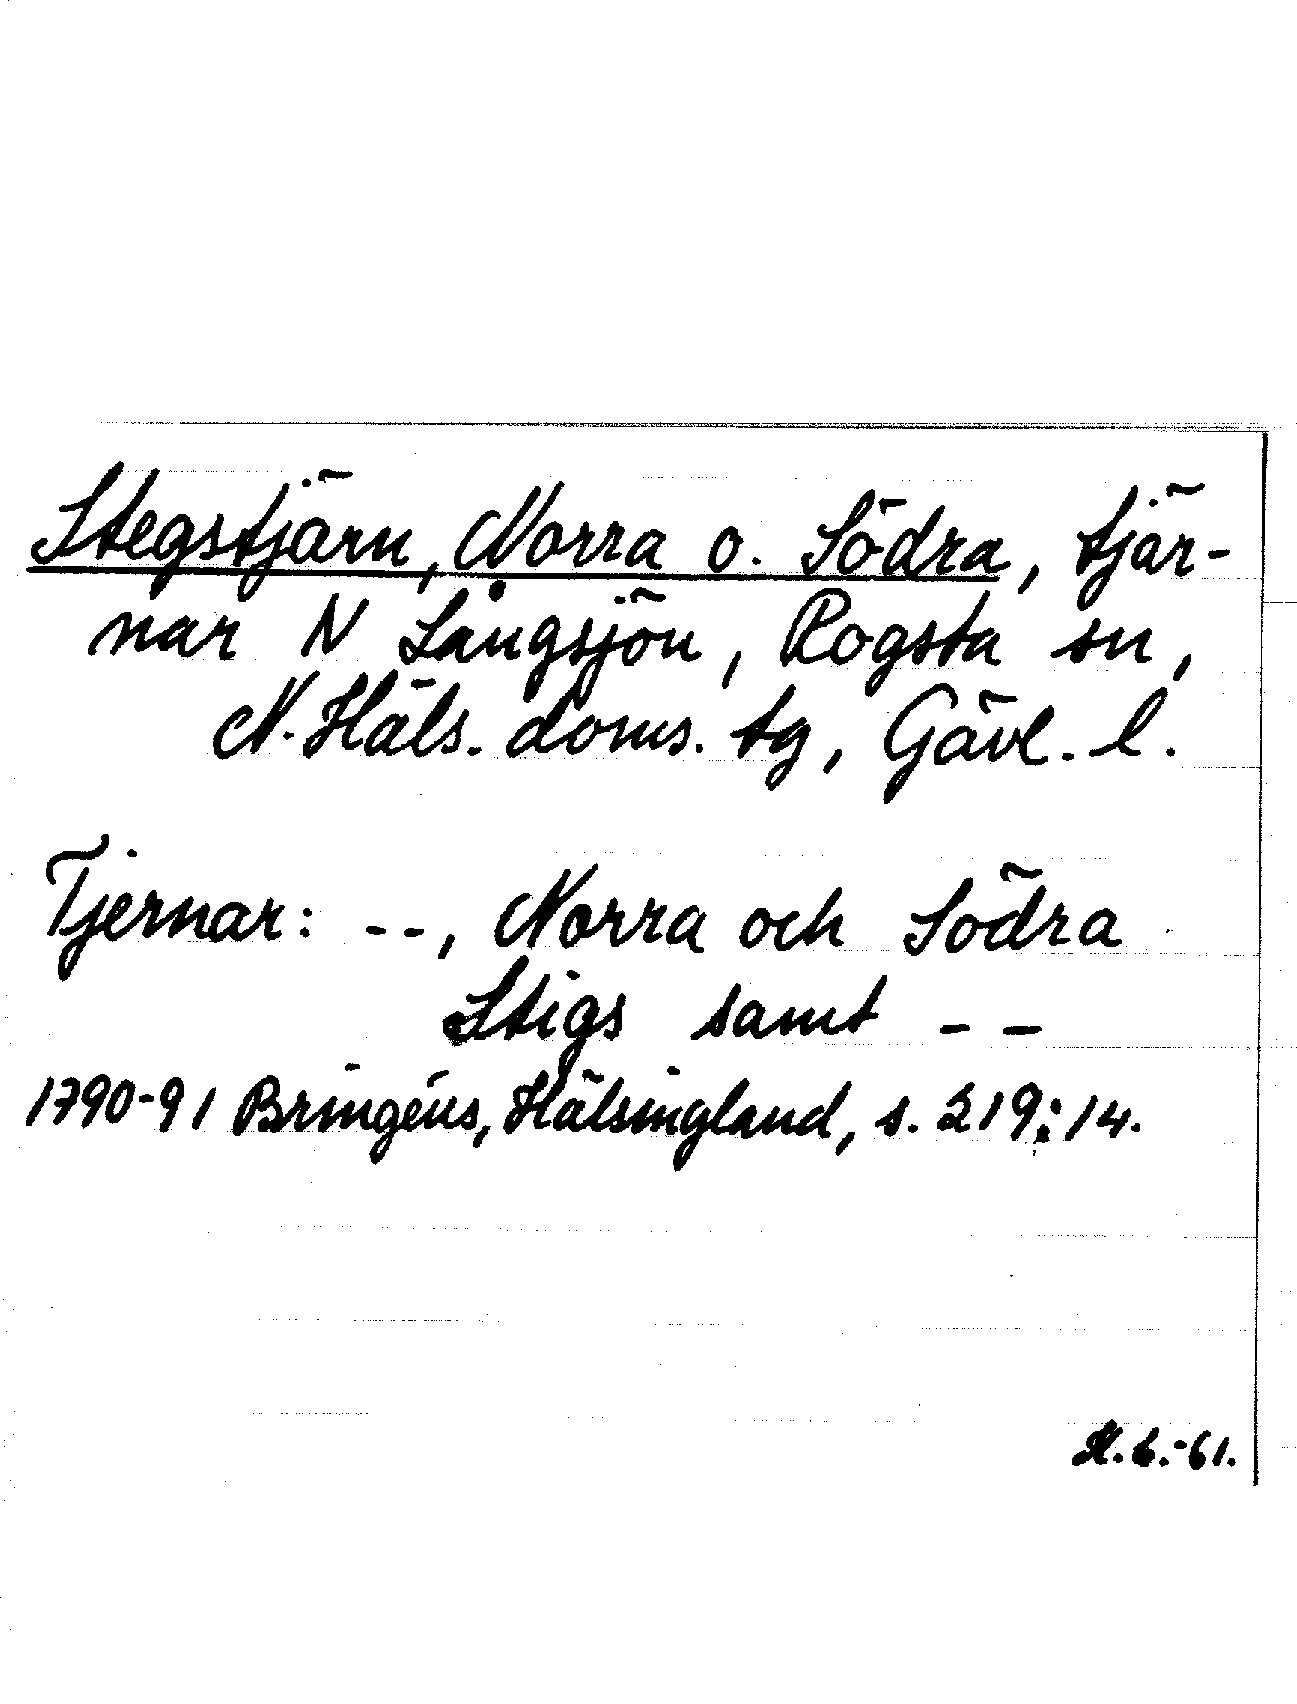 Stegstjärn, Norra o. Södra, tjär-
nar N Långsjön, Rogsta sn,
N. Häls. doms. tg, Gävl. l.
Tjernar: --, Norra och Södra
Stigs samt --
1790-91 Bringéus, Hälsingland, s. 219:14.
St. B. -61.